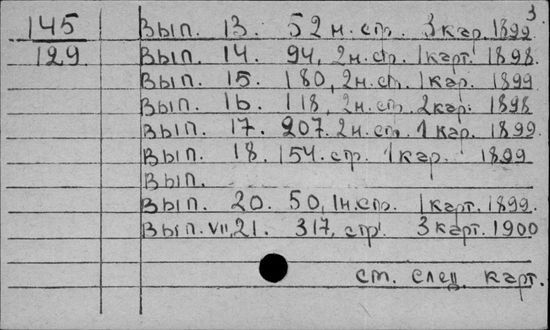 145
129
Вып. 13. 52 н. стр. 3 кар. 1899³
Вып. 14. 94, 2н. стр. 1 карт. 1898.
Вып. 15. 180, 2н. стр. 1 кар. 1899
Вып. 16. 118, 2н. стр. 2 кар. 1898
Вып. 17. 207. 2н. стр. 1 кар. 1899.
Вып. 18. 154. стр. 1 кар. 1899
Вып.
Вып. 20. 50, 1н. стр. 1 карт. 1899.
Вып. VII, 21. 317, стр. 3 карт. 1900
ст. след. карт.